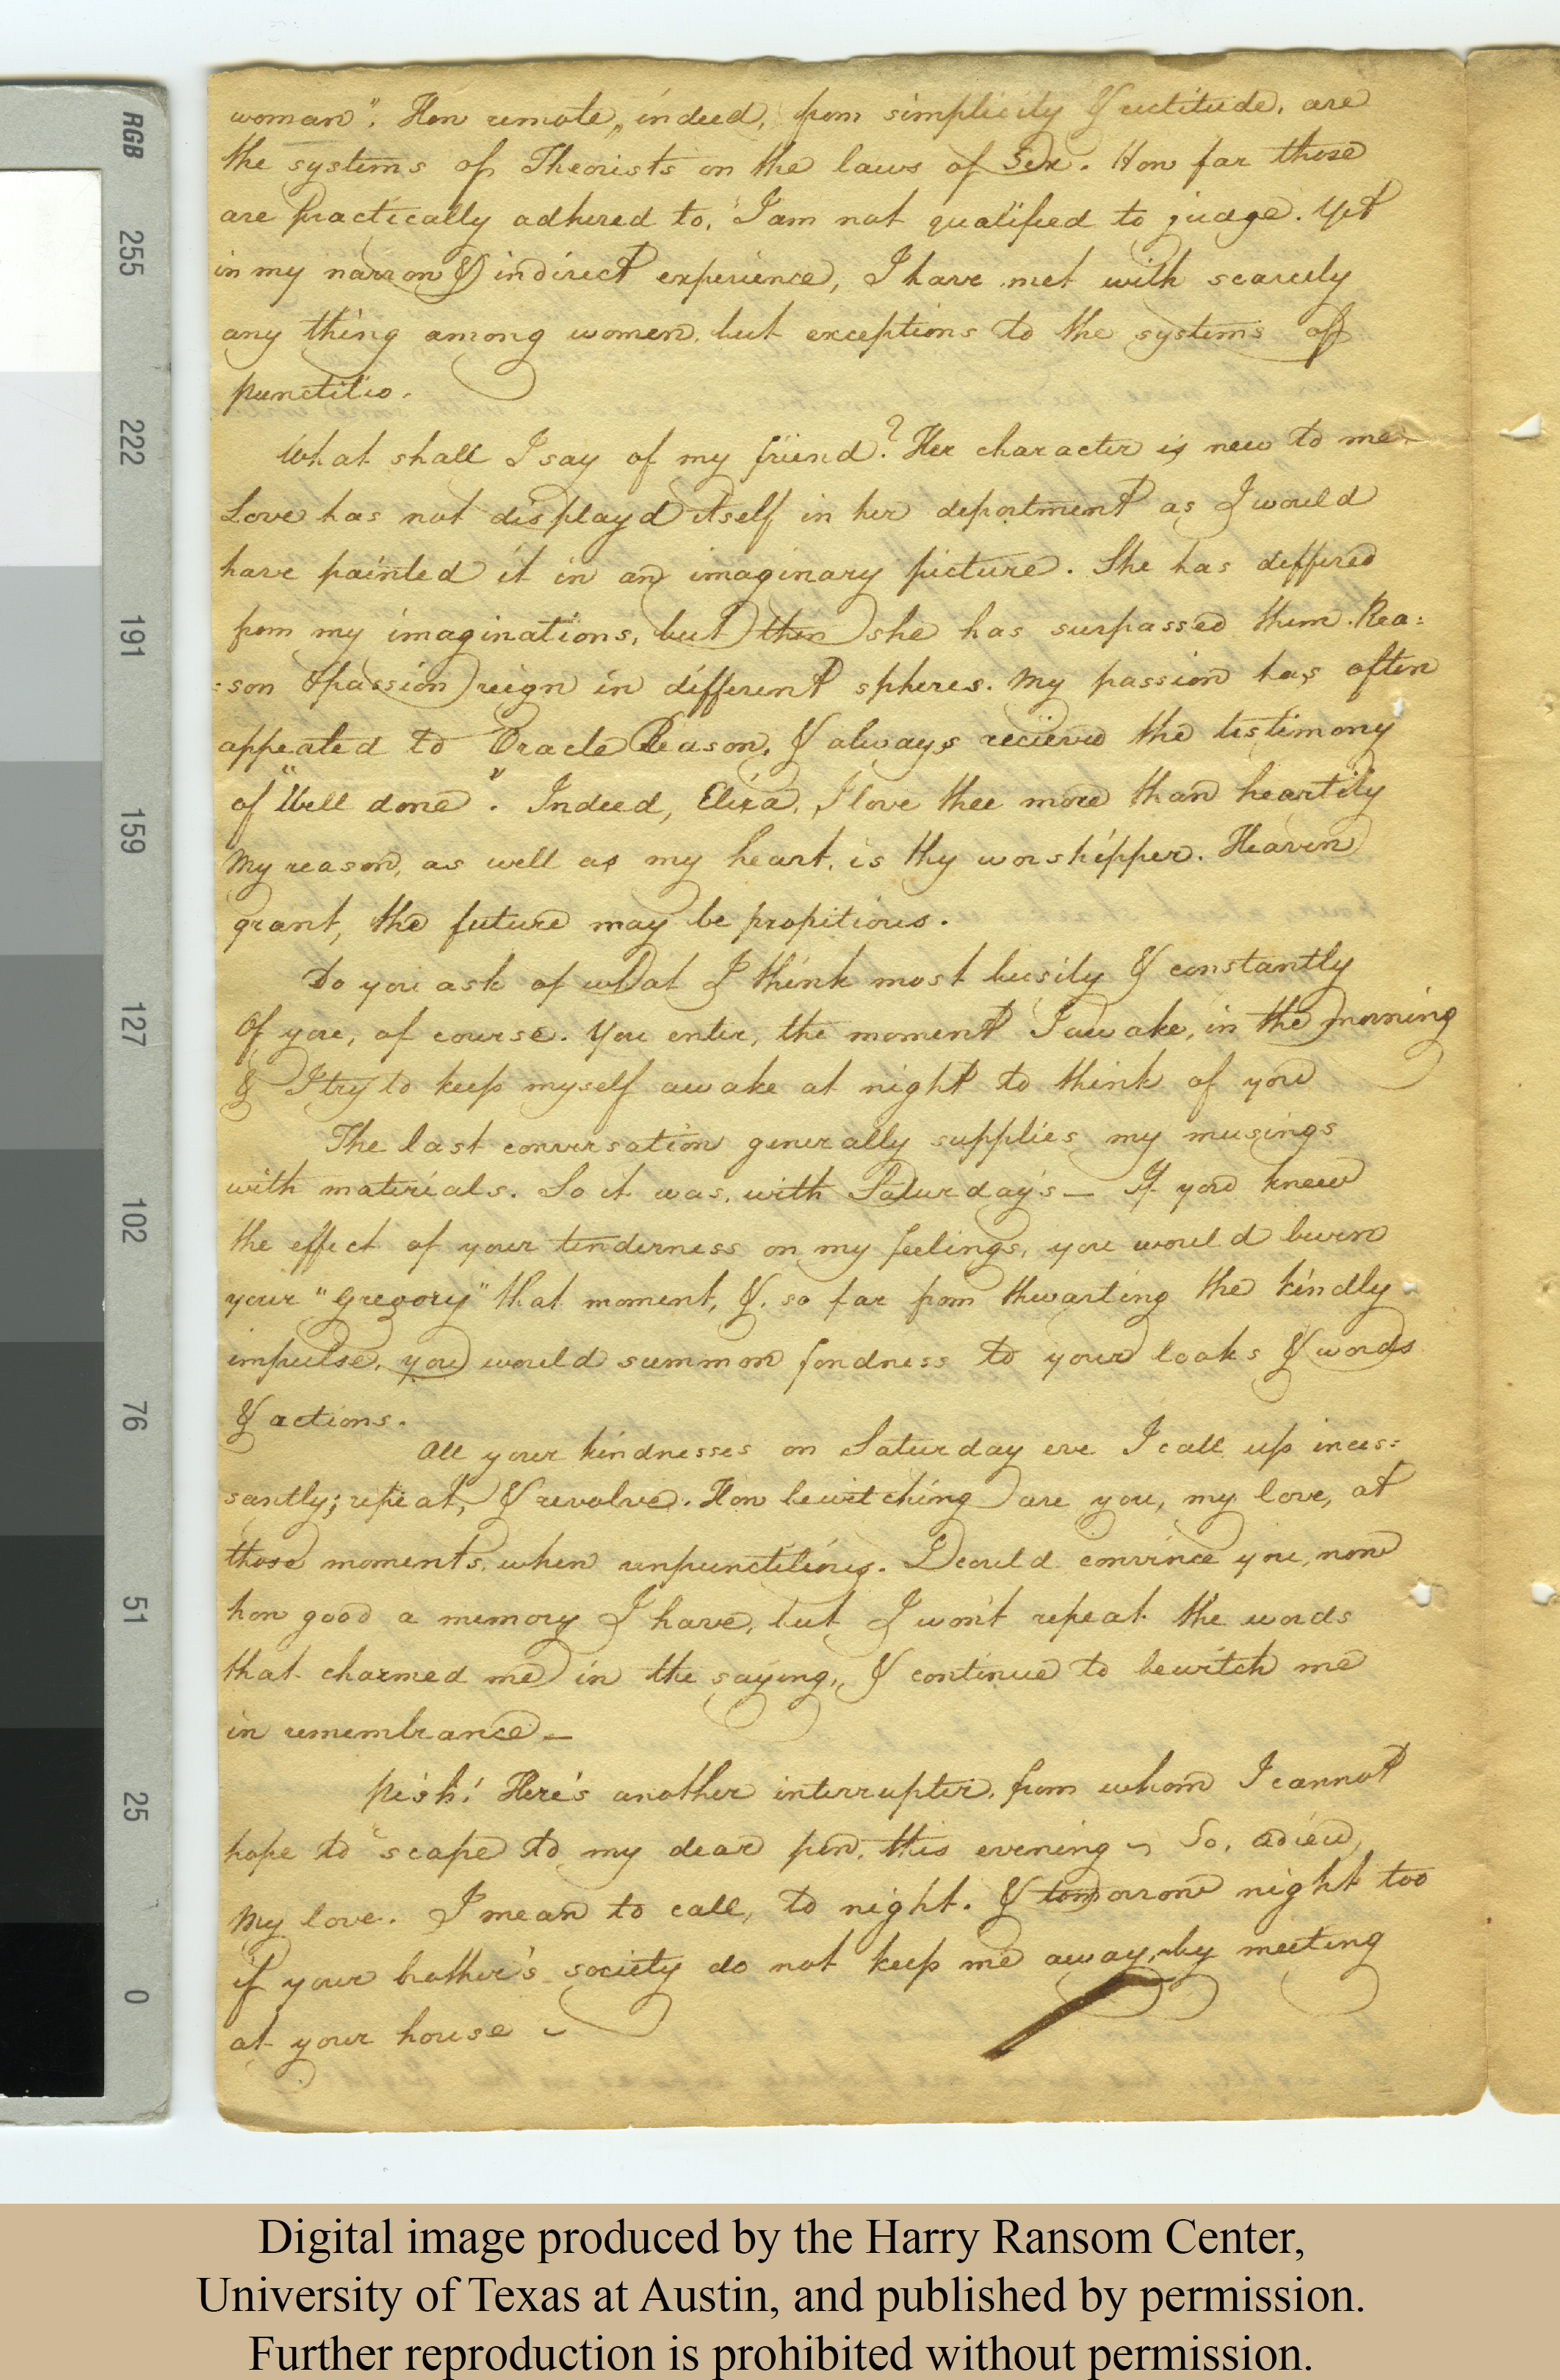 woman". How remote, indeed, from simplicity & rectitude, are
the systems of Theorists on the laws of Sex. How far those
are practically adhered to, I am not qualified to judge. Yet
in my narrow & indirect experience, I have met with scarcely
any thing among women, but exceptions to the systems of
punctilio.
What shall I say of my friend? Her character is new to me.
Love has not displayd itself in her deportment as I would
have painted it in an imaginary picture. She has differed
from my imaginations, but then she has surpassed them. Rea=
=son & passion reign in different spheres. My passion has often
appealed to Oracle Reason, & always recieved the testimony
of "Well done". Indeed, Eliza, I love thee more than heartily
My reason, as well as my heart, is thy worshipper. Heaven
grant, the future may be propitious.
Do you ask of what I think most busily & constantly
Of you, of course. You enter, the moment I awake, in the morning
& I try to keep myself awake at night to think of you
The last conversation generally supplies my musings
with materials. So it was, with Saturday's — If you knew
the effect of your tenderness on my feelings, you would burn
your "Gregory" that moment, &, so far from thwarting the kindly
impulse, you would summon fondness to your looks & words
& actions.
All your kindnesses on Saturday eve I call up inces=
santly; repeat, & revolve. How bewitching are you, my love, at
those moments, when unpunctilious. I could convince you, now
how good a memory I have, but I won't repeat the words
that charmed me in the saying, & continue to bewitch me
in remembrance —
Pish! Here's another interrupter, from whom I cannot
hope to 'scape to my dear pen, this evening – So, adieu,
My love. I mean to call, to night. & tomorrow night too
if your brother's society do not keep me away, by meeting
at your house –
RGB
255
222
191
159
127
102
76
51
25
0
Digital image produced by the Harry Ransom Center,
University of Texas at Austin, and published by permission.
Further reproduction is prohibited without permission.